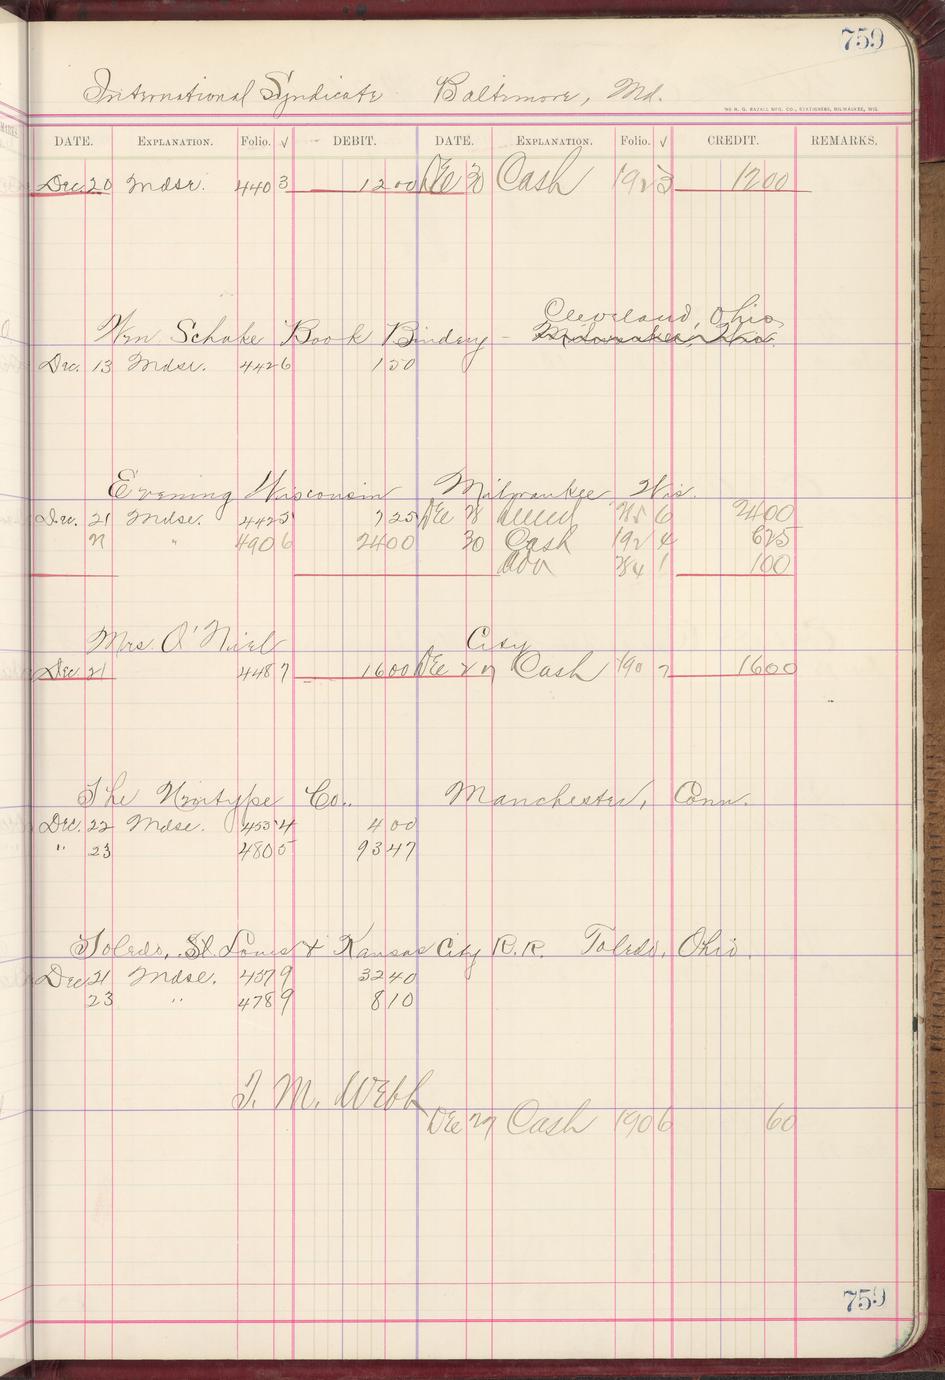 759
International Syndicate Baltimore, Md.
DATE. EXPLANATION. Folio. √ DEBIT. DATE. EXPLANATION. Folio. √ CREDIT. REMARKS.
Dec. 20 Mdse. 440 3 1200 Dec 30 Cash 192 3 1200
Cleveland, Ohio
Wm Schake Book Bindery - Milwaukee, Wis.
Dec. 13 Mdse. 442 6 150
Evening Wisconsin Milwaukee Wis.
Dec. 21 Mdse. 442 5 725 Dec 28 6 2400
" 490 6 2400 30 Cash 192 4 625
1 100
Mrs. O'Niel City
Dec. 21 448 7 1600 Dec 27 Cash 190 7 1600
The Co. Manchester, Conn.
Dec. 22 Mdse. 455 4 400
" 23 480 5 9347
Toledo, St. Louis & Kansas City R.R. Toledo, Ohio.
Dec 21 Mdse. 457 9 3240
23 " 478 9 810
T. M. Webb
Dec 27 Cash 190 6 60
759